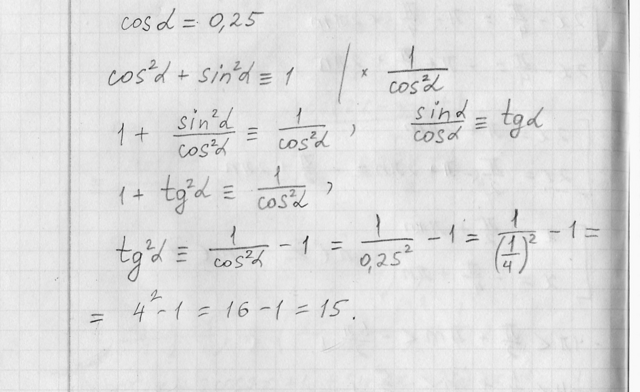 cos α = 0,25
cos²α + sin²α ≡ 1 | × 1/cos²α
1 + sin²α/cos²α ≡ 1/cos²α, sinα/cosα ≡ tgα
1 + tg²α ≡ 1/cos²α,
tg²α ≡ 1/cos²α - 1 = 1/0,25² - 1 = 1/(1/4)² - 1 =
= 4² - 1 = 16 - 1 = 15.